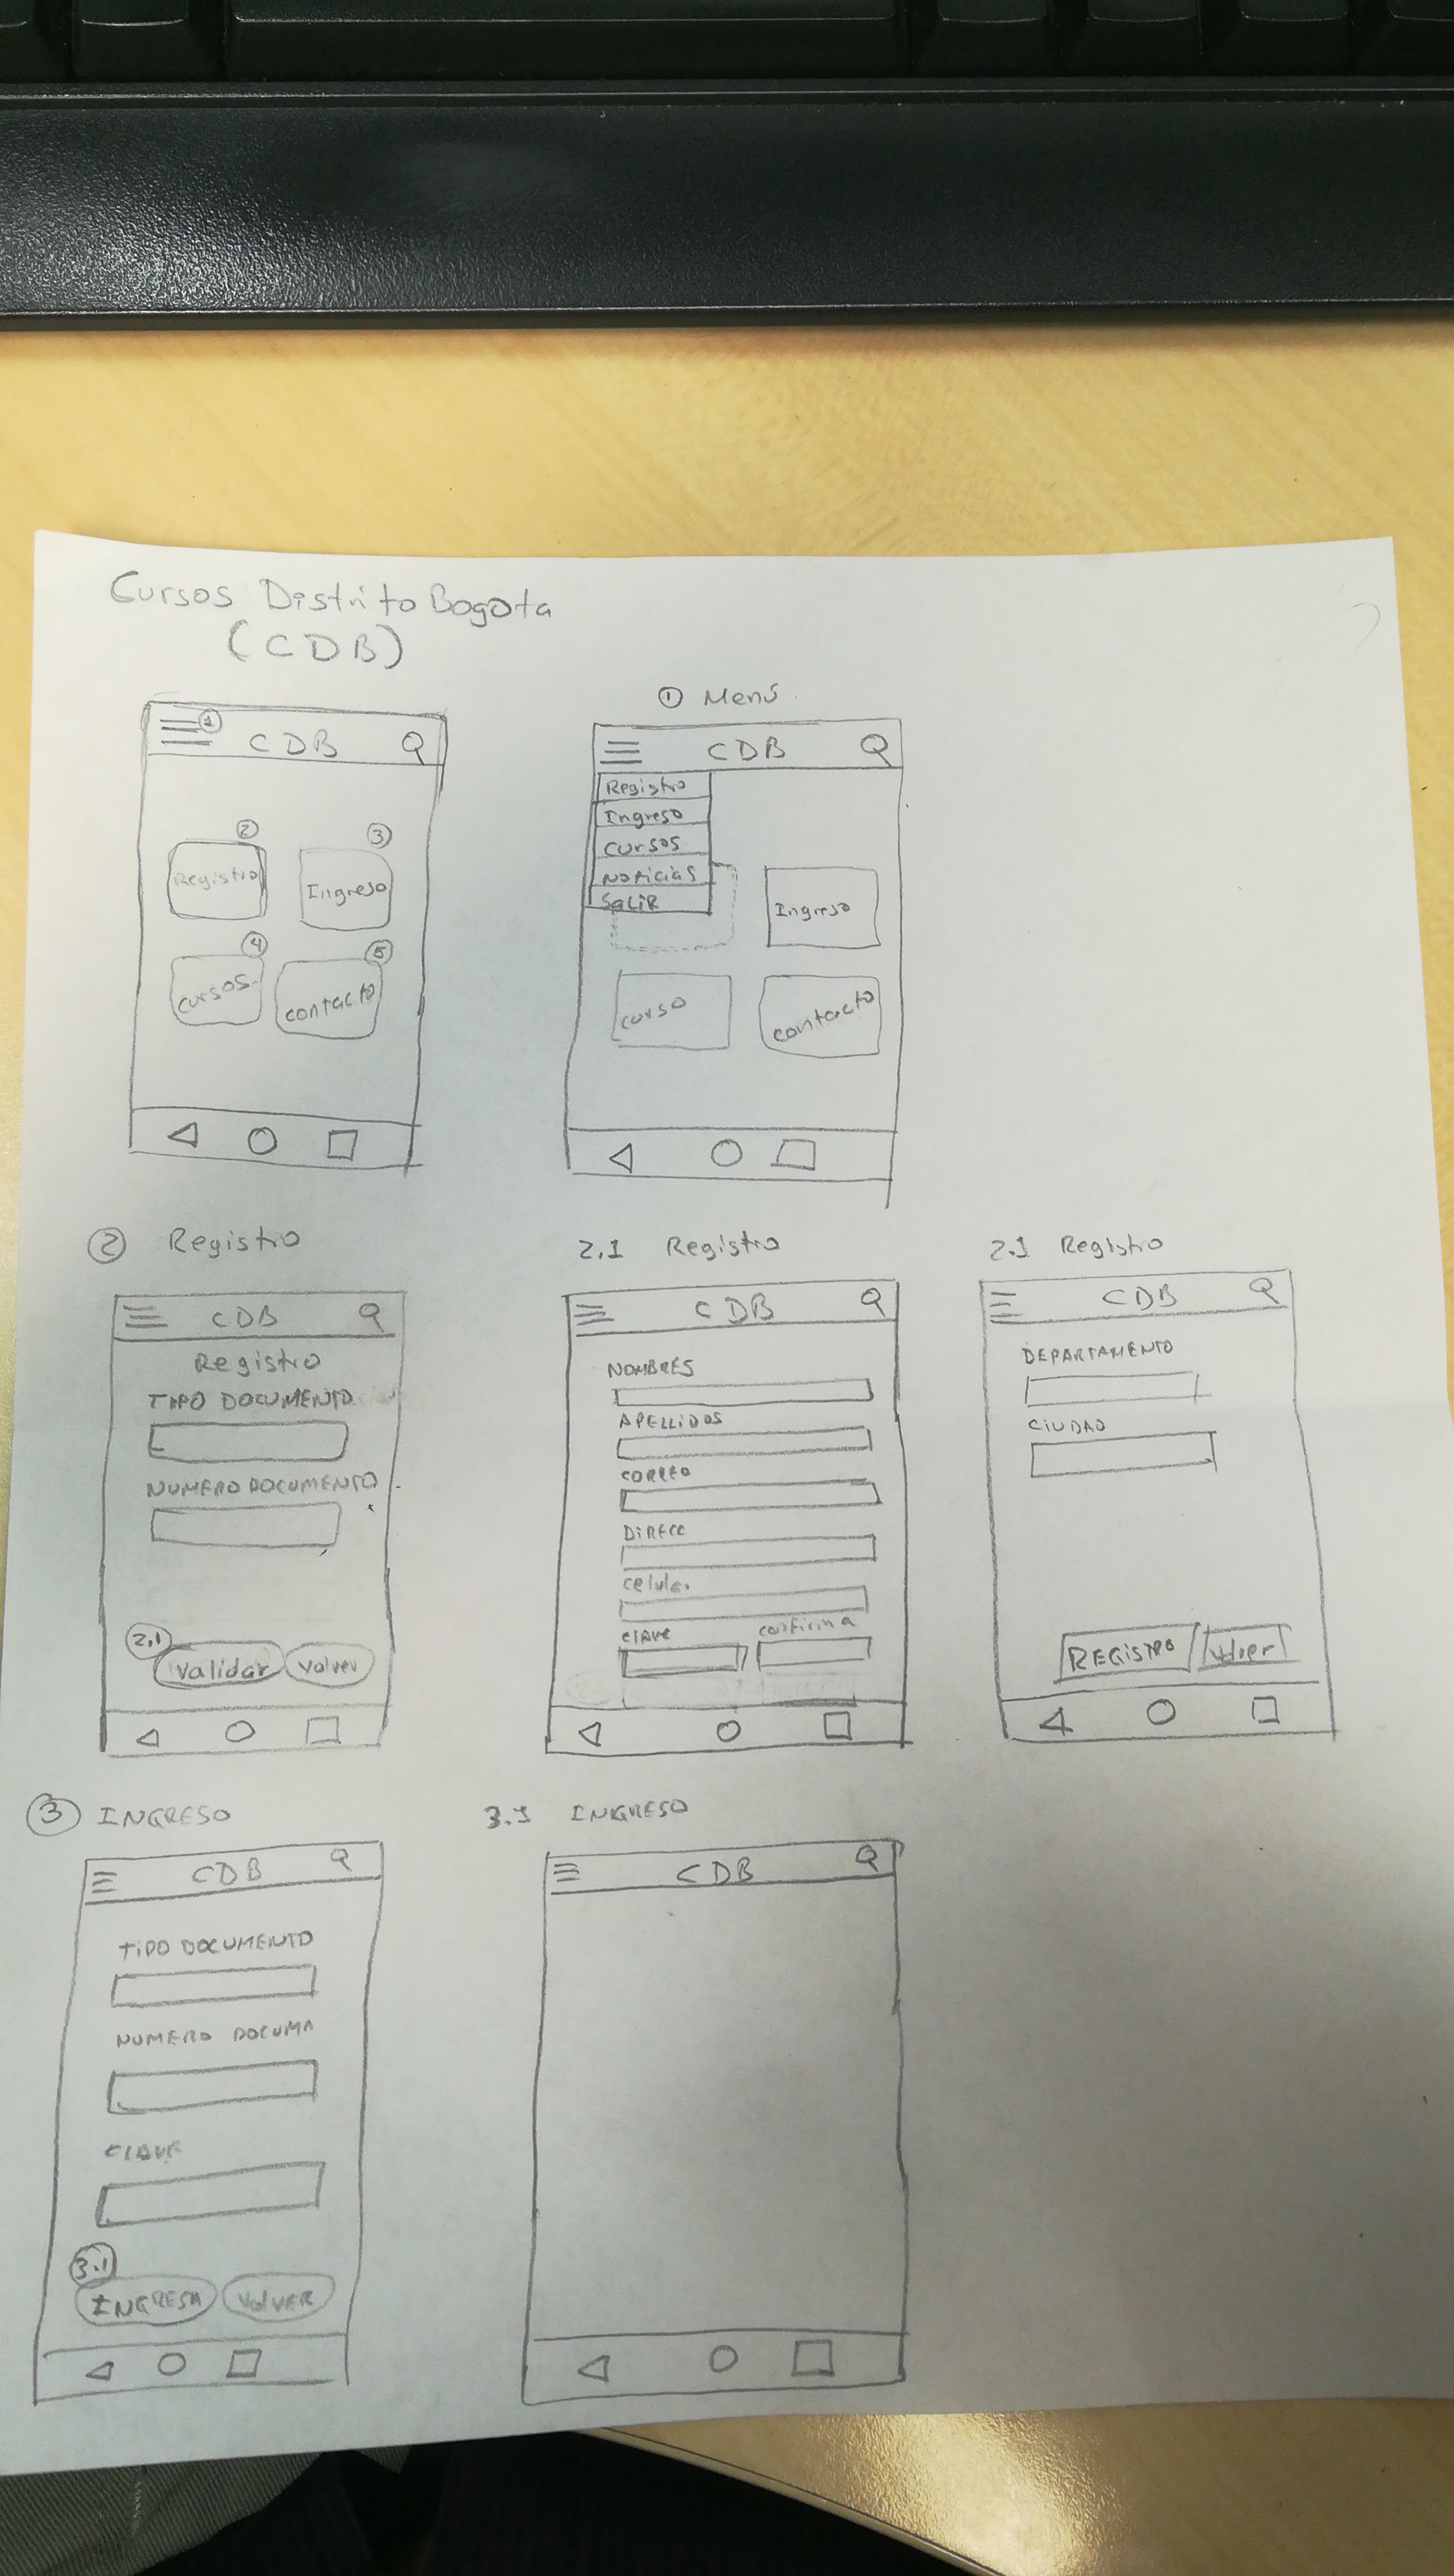 Cursos Distrito Bogota
(CDB)
1
CDB
2
3
Registro
Ingreso
4
5
Cursos
contacto
1 Menú
CDB
Registro
Ingreso
Cursos
Noticias
Salir
Ingreso
curso
contacto
2 Registro
CDB
Registro
TIPO DOCUMENTO
NUMERO DOCUMENTO
2.1
Validar
Volver
2.1 Registro
CDB
NOMBRES
APELLIDOS
CORREO
DIRECC
celular
clave
confirma
2.1 Registro
CDB
DEPARTAMENTO
CIUDAD
REGISTRO
3 INGRESO
CDB
TIPO DOCUMENTO
NUMERO DOCUM
CLAVE
3.1
INGRESA
VOLVER
3.1 INGRESO
CDB